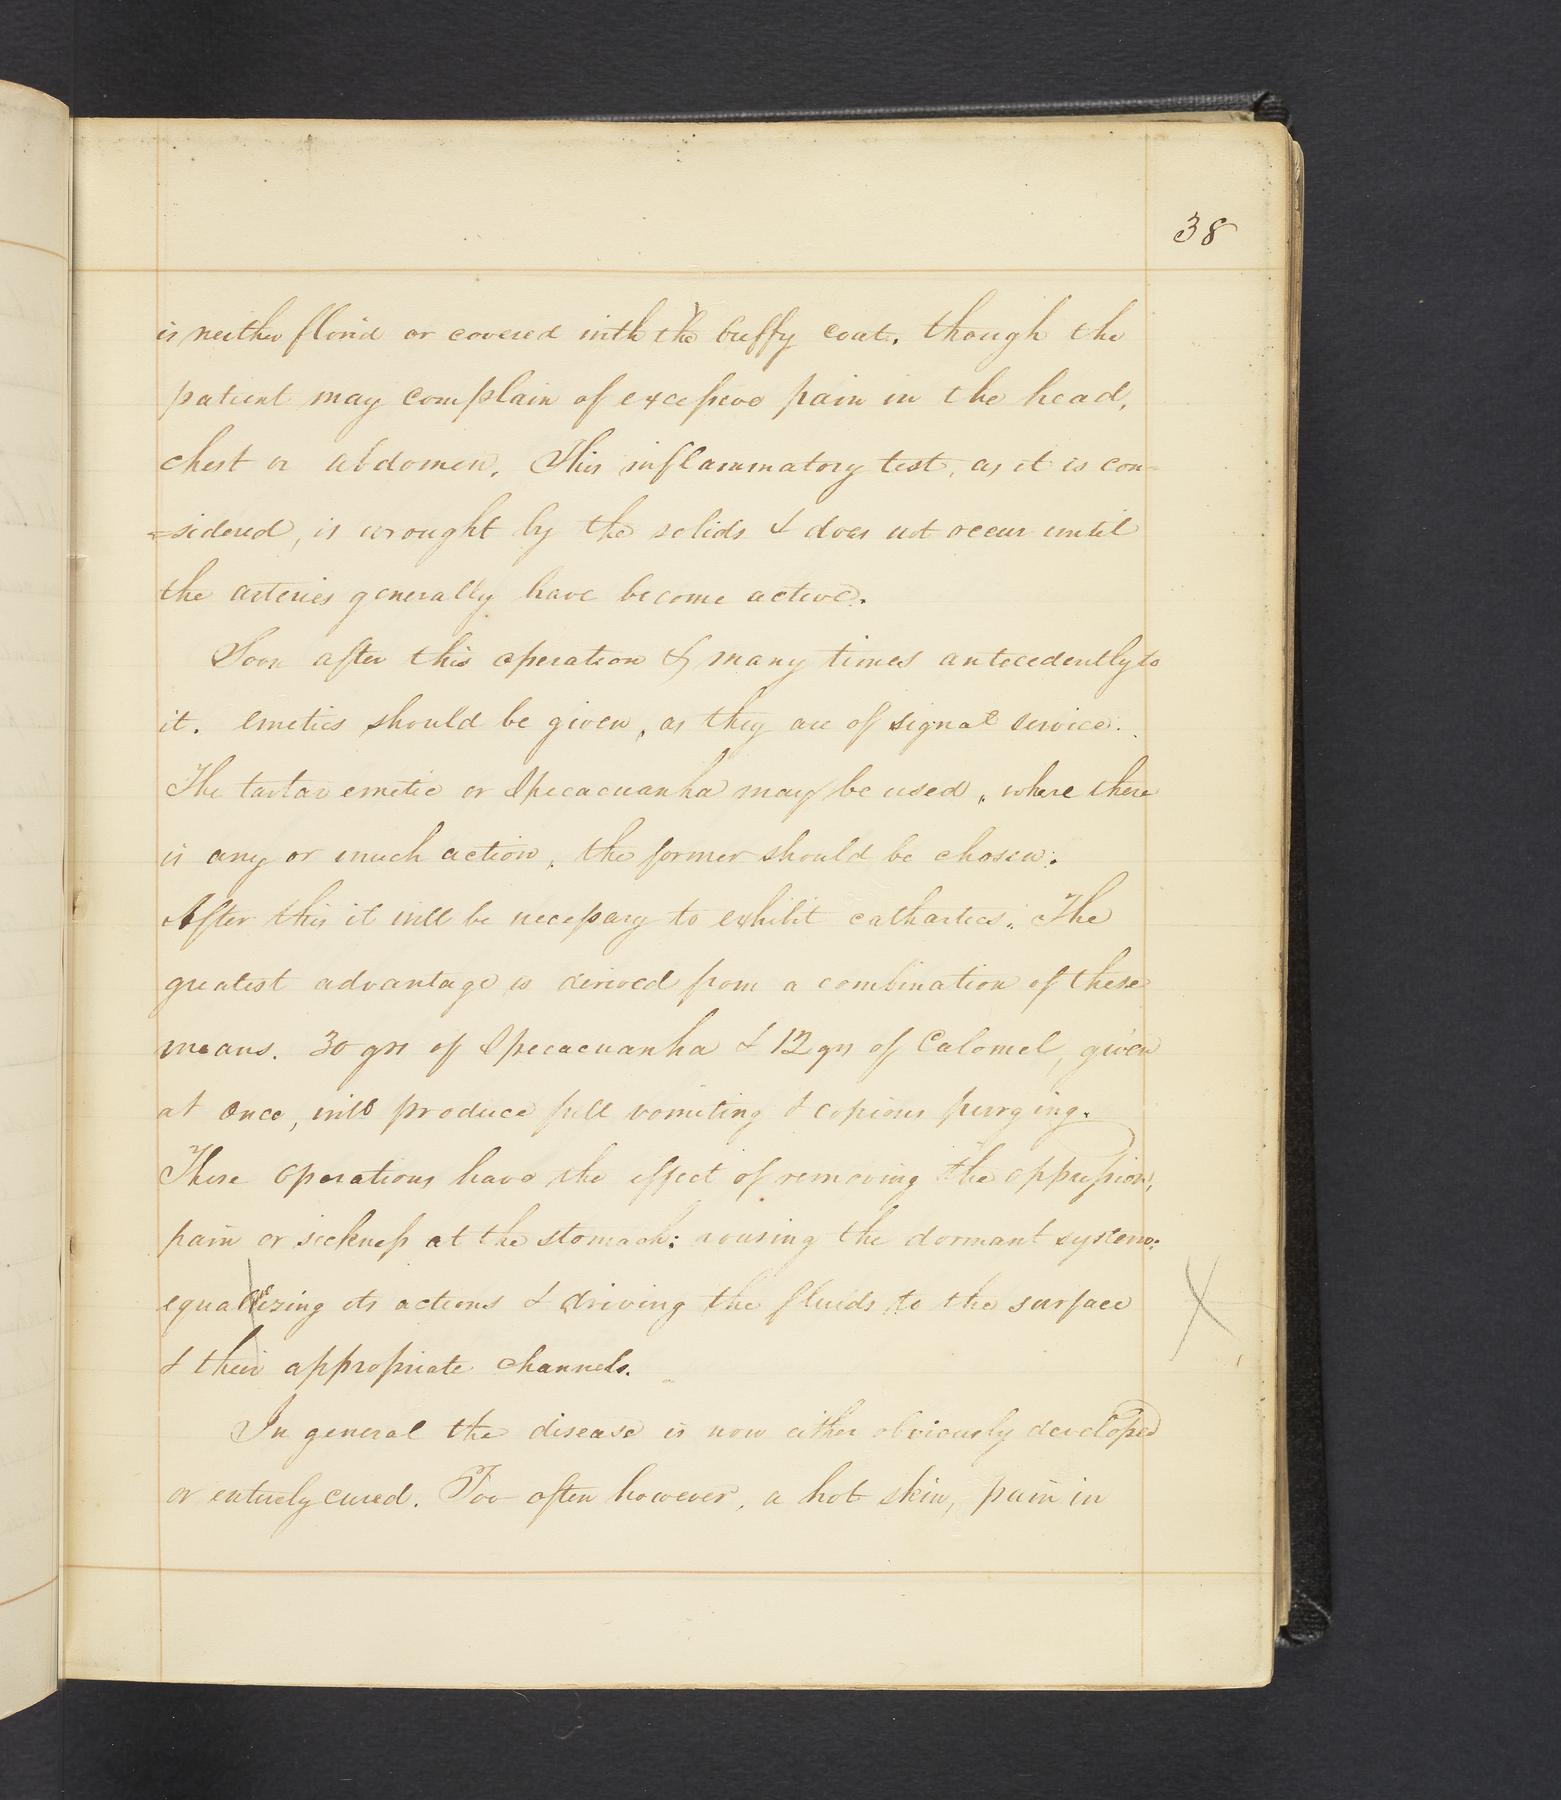 38
is neither florid or covered with the buffy coat, though the
patient may complain of excessive pain in the head,
chest or abdomen. This inflammatory test, as it is con=
=sidered, is wrought by the solids & does not occur until
the arteries generally have become active.
Soon after this operation & many times antecedently to
it. emetics should be given, as they are of signal service.
The tartar emetic or Ipecacuanha may be used, where there
is any or much action, the former should be chosen.
After this it will be necessary to exhibit cathartics. The
greatest advantage is derived from a combination of these
means. 30 grs of Ipecacuanha & 12 grs of Calomel, given
at once, will produce full vomiting & copious purging.
These operations have the effect of removing the oppression,
pain or sickness at the stomach: rousing the dormant system:
equalizing its actions & driving the fluids to the surface
& their appropriate channels.
In general the disease is now either obviously developed
or entirely cured. Too often however, a hot skin, pain in